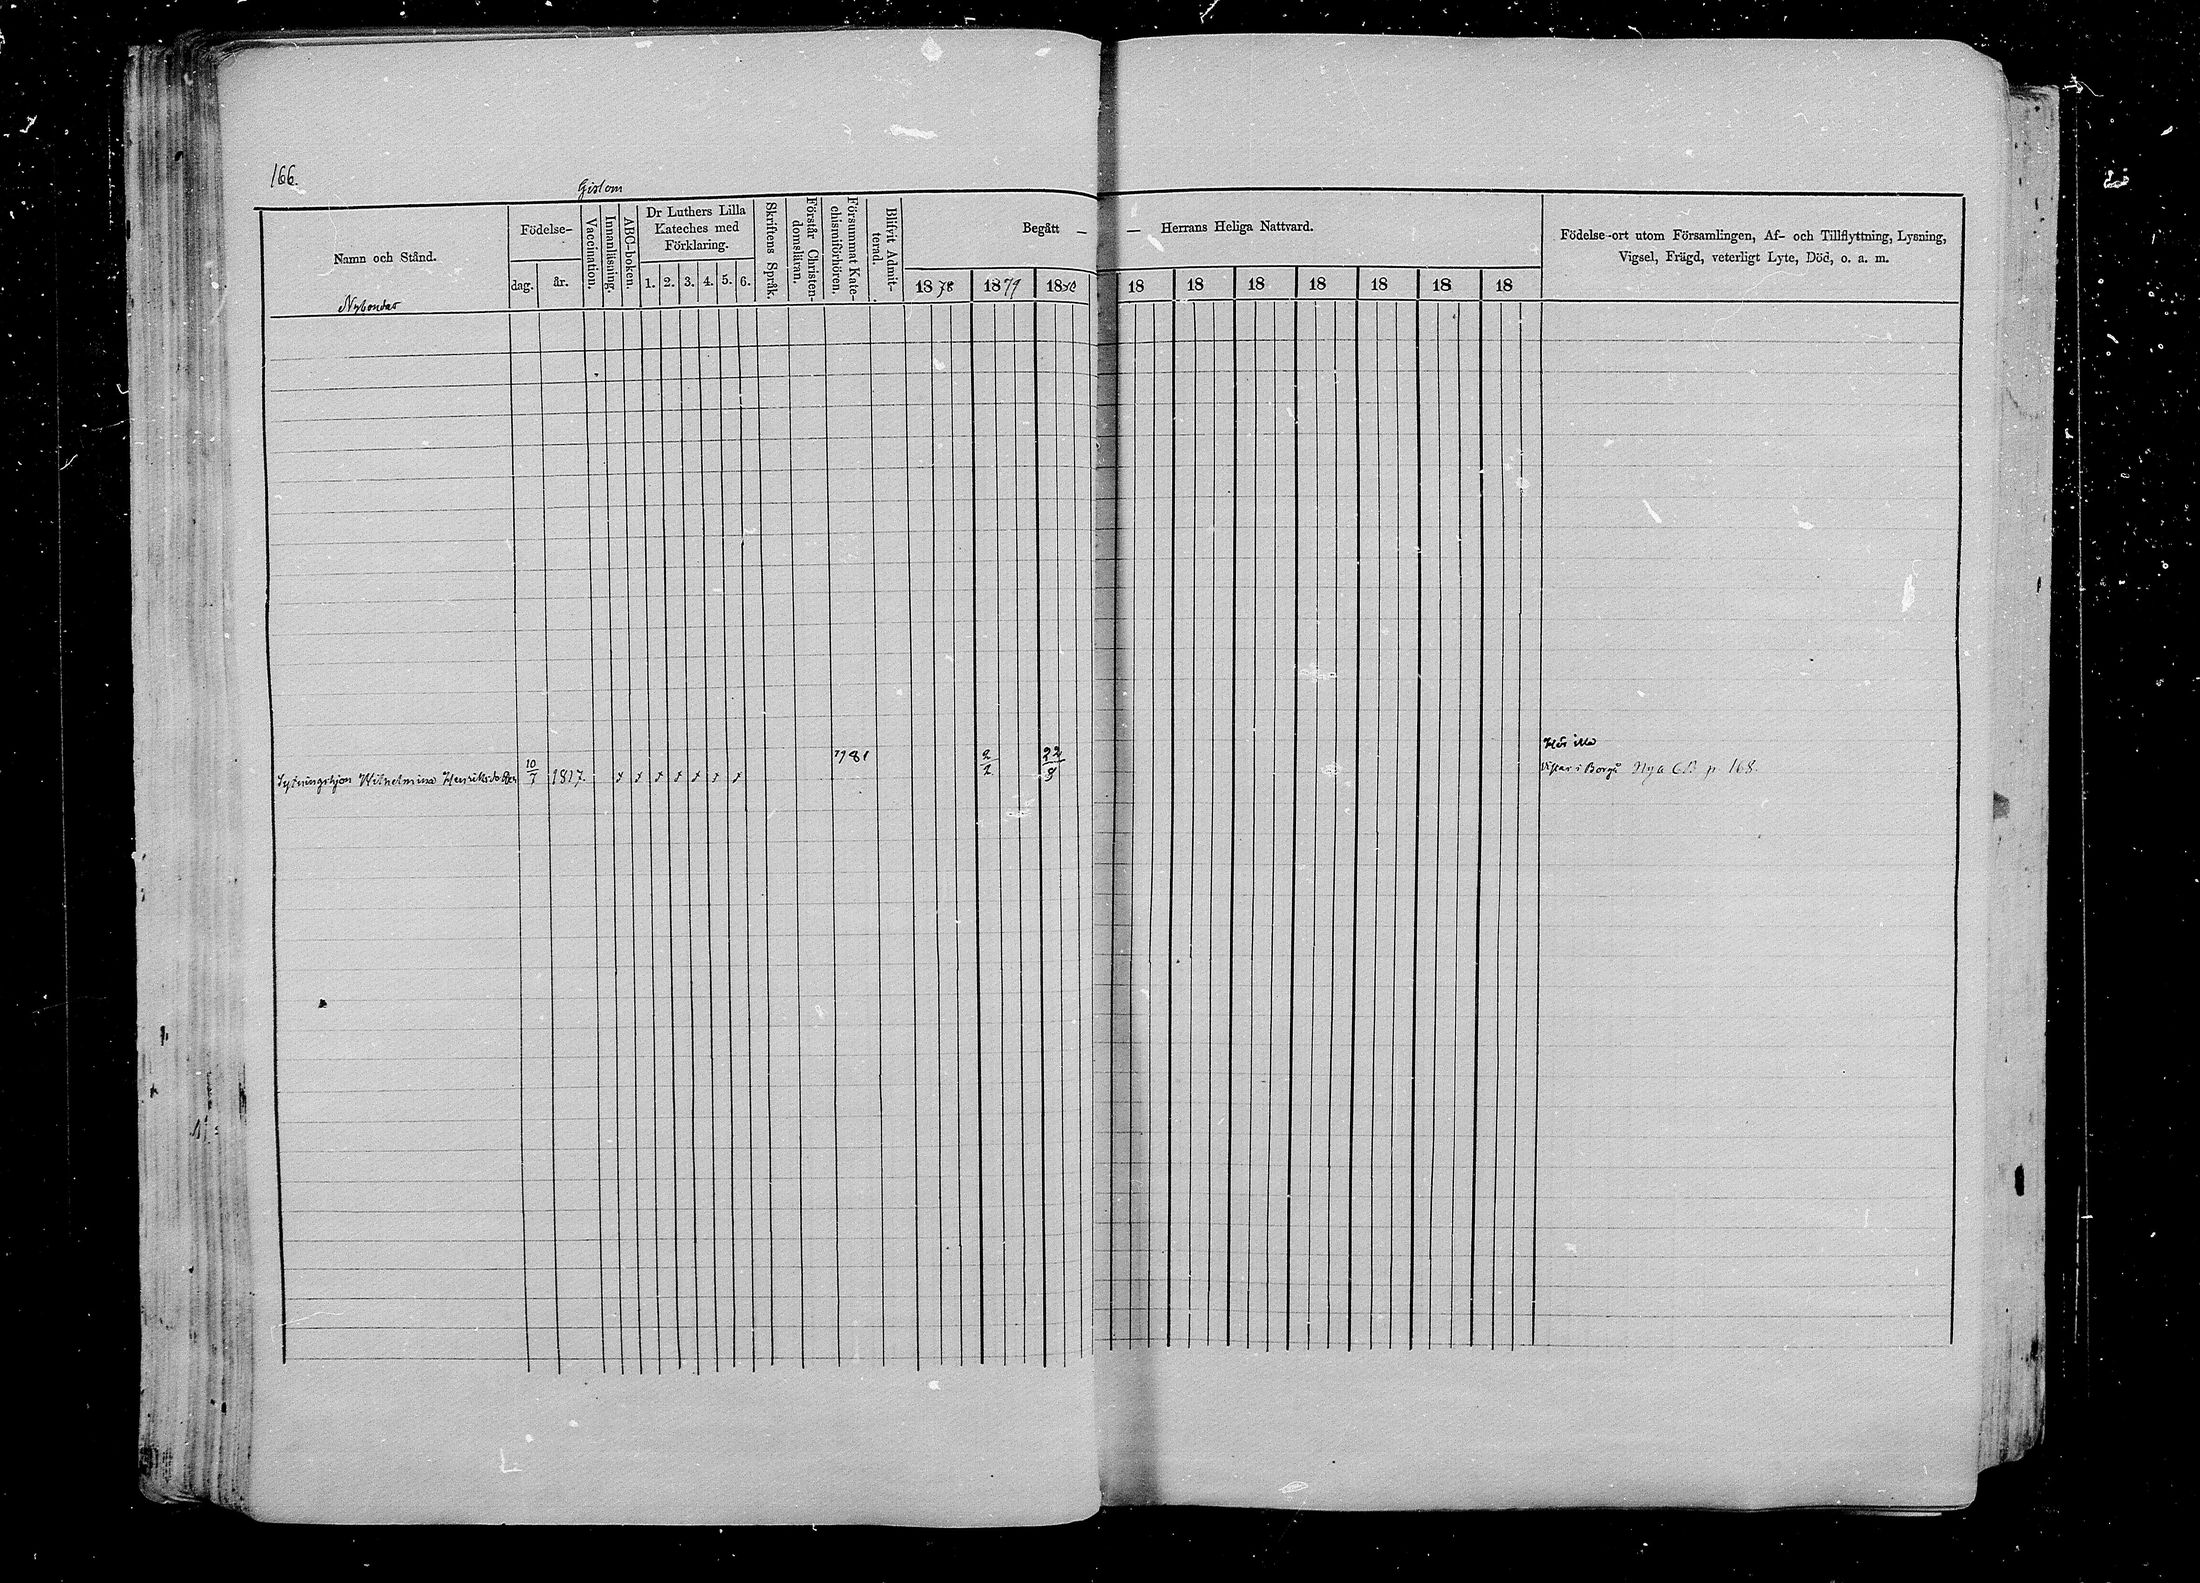 166.
Gislom
Namn och Stånd.
Födelse-
dag.
år.
Vaccination.
Innanläsning.
ABC-boken.
Dr Luthers Lilla
Kateches med
Förklaring.
1. 2. 3. 4. 5. 6.
Skriftens Språk.
Förstår Christen-
domsläran.
Försummat Kate-
chismiförhören.
Blifvit Admit-
terad.
Begått — — Herrans Heliga Nattvard.
1878 1879 1880 18 18 18 18 18 18 18
Födelse-ort utom Församlingen, Af- och Tillflyttning, Lysning,
Vigsel, Frägd, veterligt Lyte, Död, o. a. m.
Nybondas
Hör illa
Sytningshjon Wilhelmina Henriksdotter 10/7 1817. x x x x x x x 7981 2/2 22/8 Vistas i Borgå Nya CB p. 168.